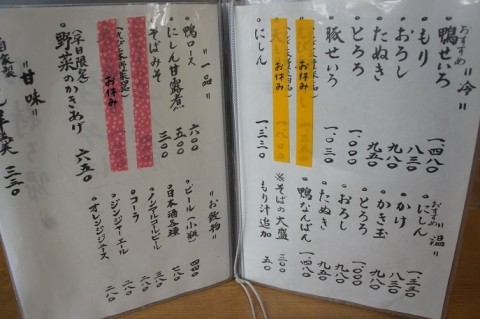 おすすめ =冷=
鴨せいろ 一四八〇
もり 八三〇
おろし 九八〇
たぬき 九五〇
とろろ 一〇〇〇
豚せいろ 一〇三〇
お休み
お休み
にしん 一三三〇
おすすめ =温=
にしん 一三三〇
かけ 八三〇
かき玉 九八〇
とろろ 一〇〇〇
おろし 九八〇
たぬき 九五〇
鴨なんばん 一四八〇
※そばの大盛 三〇〇
もり汁追加 五〇
=一品=
鴨ロース 六〇〇
にしん甘露煮 五〇〇
そばみそ 三〇〇
お休み
お休み
(平日限定)
野菜のかきあげ 六五〇
=甘味=
自家製
三三〇
=お飲物=
ビール(小瓶) 四四〇
日本酒各種 七八〇
ノンアルコールビール
コーラ 二八〇
ジンジャーエール 二八〇
オレンジジュース 二八〇